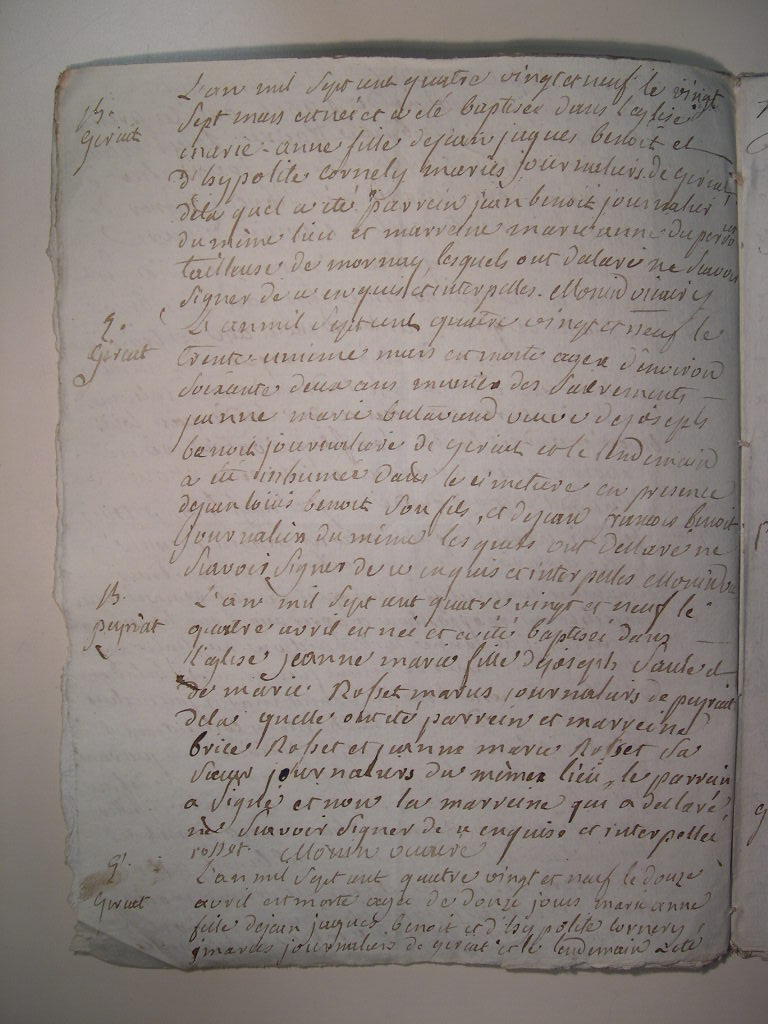 B.
Geriat
L'an mil sept cent quatre vingt et neuf le vingt
sept mars est née et a été baptisée dans l'eglise
marie-anne fille de jean jaques benoit et
d'hypolite cornely mariés journaliers de geriat
de la quel a été parrein jean benoit journalier
du même lieu et marreine marie anne duper
tailleuse de mornay, lesquels ont declaré ne savoir
signer de ce enquis et interpellés. Monin vicaire
S.
Geriat
L'an mil sept cent quatre vingt et neuf le
trente-unieme mars est morte agee d'environ
soixante deux ans munie des sacrements
jeanne marie veuve de joseph
benoit journaliere de geriat et le lendemain
a été inhumée dans le cimetiere en presence
de jean louis benoit son fils, et de jean francois benoit
journaliers du même lesquels ont declaré ne
savoir signer de ce enquis et interpellés Monin
B.
peyriat
L'an mil sept cent quatre vingt et neuf le
quatre avril est née et a été baptisée dans
l'eglise jeanne marie fille de joseph et
de marie Rosset mariés journaliers de peyriat
de la quelle ont été parrein et marreine
brice Rosset et jeanne marie Rosset sa
sœur journaliers du même lieu, le parrein
a signé et non la marreine qui a declaré
ne savoir signer de ce enquise et interpellée
rosset. Monin vicaire
S.
Geriat
L'an mil sept cent quatre vingt et neuf le douze
avril est morte agée de douze jours marie anne
fille de jean jaques benoit et d'hypolite cornely
mariés journaliers de geriat et le lendemain a été